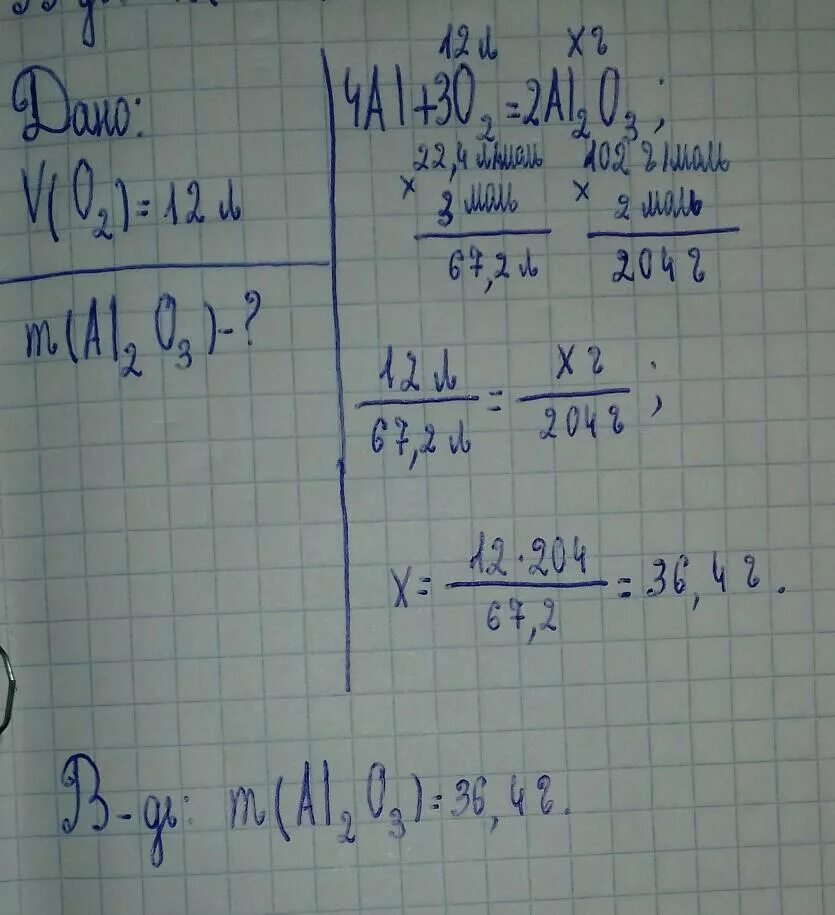 Дано:
V(O₂) = 12 л
m(Al₂O₃) - ?
12 л   x г
4Al + 3O₂ = 2Al₂O₃;
22,4 л/моль   102 г/моль
× 3 моль   × 2 моль
67,2 л   204 г
12 л / 67,2 л = x г / 204 г;
x = 12 · 204 / 67,2 = 36,4 г.
В-дь: m(Al₂O₃) = 36,4 г.